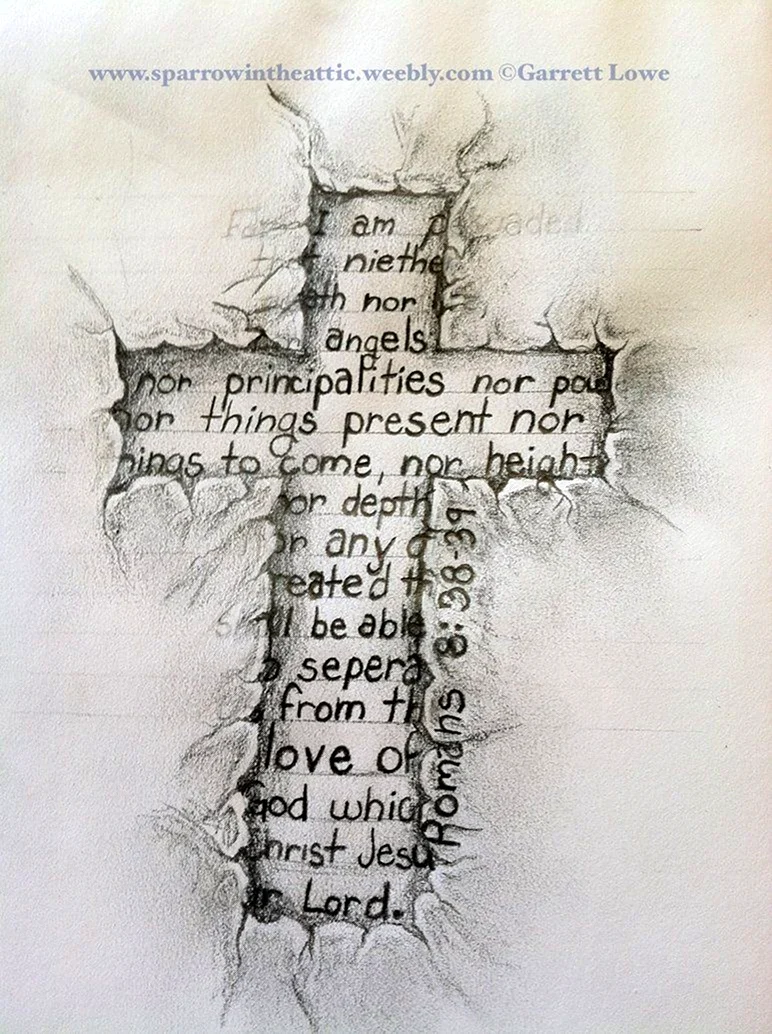 www.sparrowintheattic.weebly.com ©Garrett Lowe
For I am p uaded
that niethe
eth nor
angels
nor principalities nor pow
nor things present nor
hings to come, nor height
or depth
or any o
reated th
shall be able
o sepera
from th
love of
God whic
Christ Jesu
ur Lord.
Romans 8:38-39